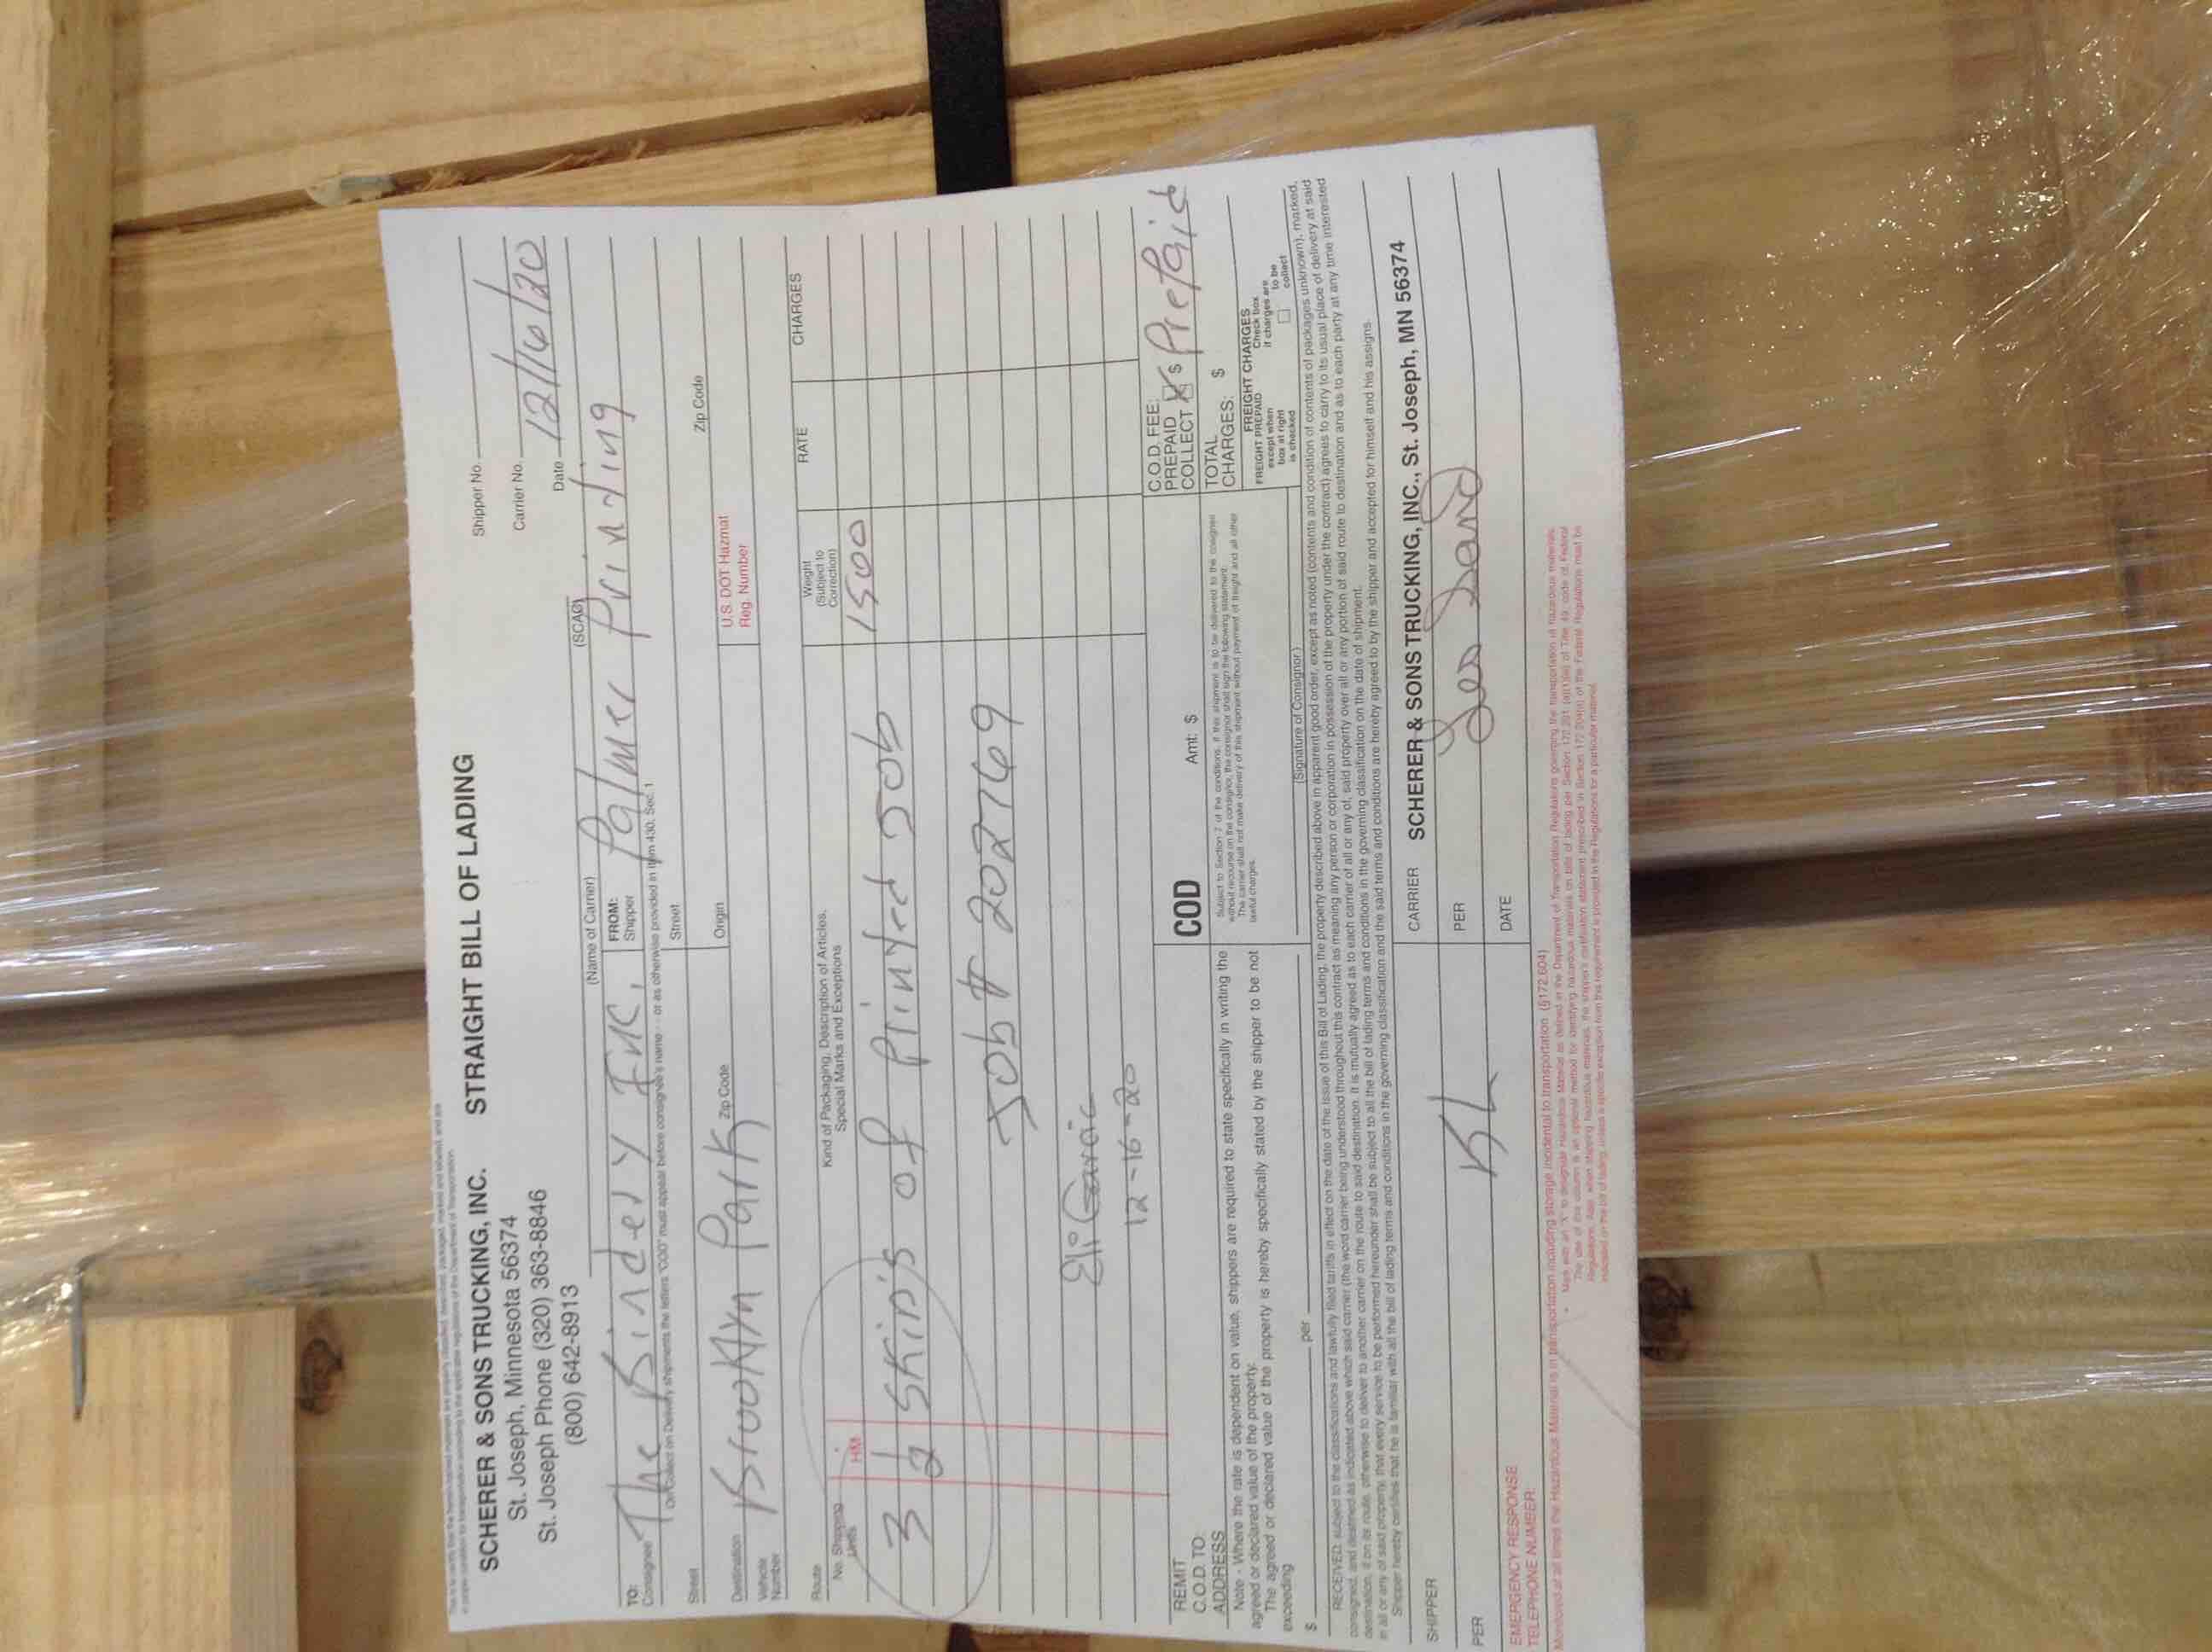 This is to certify that the herein named materials are properly classified, described, packaged, marked and labeled, and are
in proper condition for transportation according to the applicable regulations of the Department of Transportation.
SCHERER & SONS TRUCKING, INC. STRAIGHT BILL OF LADING
St. Joseph, Minnesota 56374
St. Joseph Phone (320) 363-8846
(800) 642-8913
Shipper No.
Carrier No.
Date 12/16/20
(Name of Carrier) (SCAC)
TO: Consignee The Bindery Inc.
FROM: Shipper Palmer Printing
On Collect on Delivery shipments the letters "COD" must appear before consignee's name - or as otherwise provided in Item 430, Sec. 1
Street
Street
Destination Brooklyn Park Zip Code
Origin Zip Code
Vehicle Number
U.S. DOT Hazmat Reg. Number
Route
No. Shipping Units
HM
Kind of Packaging, Description of Articles,
Special Marks and Exceptions
Weight (Subject to Correction)
RATE
CHARGES
3 1/2 Skip's of Printed Job 1500
Job # 202769
Eli Garcia
12-16-20
REMIT
C.O.D. TO:
ADDRESS
COD Amt: $
C.O.D. FEE:
PREPAID
COLLECT $ Prepaid
Note - Where the rate is dependent on value, shippers are required to state specifically in writing the
agreed or declared value of the property.
The agreed or declared value of the property is hereby specifically stated by the shipper to be not
exceeding
$ per
Subject to Section 7 of the conditions, if this shipment is to be delivered to the consignee
without recourse on the consignor, the consignor shall sign the following statement:
The carrier shall not make delivery of this shipment without payment of freight and all other
lawful charges.
(Signature of Consignor)
TOTAL
CHARGES: $
FREIGHT CHARGES
FREIGHT PREPAID
except when
box at right
is checked
Check box
if charges are
to be
collect
RECEIVED, subject to the classifications and lawfully filed tariffs in effect on the date of the issue of this Bill of Lading, the property described above in apparent good order, except as noted (contents and condition of contents of packages unknown), marked,
consigned, and destined as indicated above which said carrier (the word carrier being understood throughout this contract as meaning any person or corporation in possession of the property under the contract) agrees to carry to its usual place of delivery at said
destination, if on its route, otherwise to deliver to another carrier on the route to said destination. It is mutually agreed as to each carrier of all or any of, said property over all or any portion of said route to destination and as to each party at any time interested
in all or any of said property, that every service to be performed hereunder shall be subject to all the bill of lading terms and conditions in the governing classification on the date of shipment.
Shipper hereby certifies that he is familiar with all the bill of lading terms and conditions in the governing classification and the said terms and conditions are hereby agreed to by the shipper and accepted for himself and his assigns.
SHIPPER
CARRIER SCHERER & SONS TRUCKING, INC., St. Joseph, MN 56374
PER KL
PER
DATE
EMERGENCY RESPONSE
TELEPHONE NUMBER:
Monitored at all times the Hazardous Material is in transportation including storage incidental to transportation (§172.604)